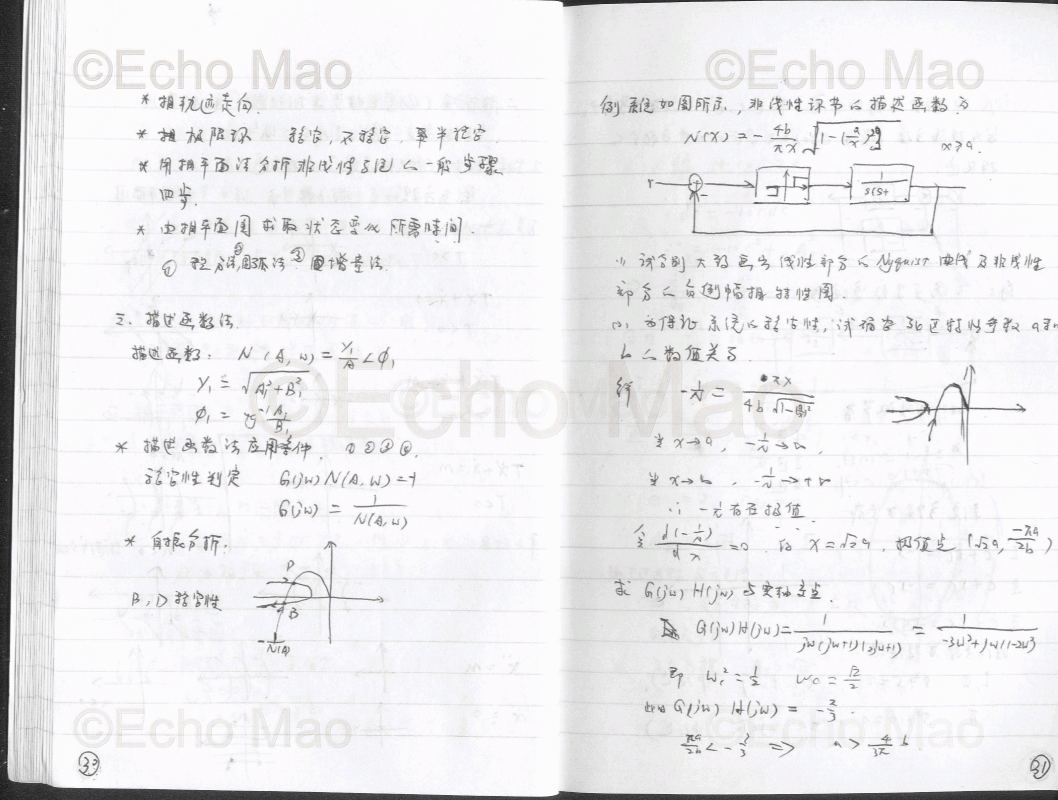 ©Echo Mao
* 相轨迹走向.
* 极限环 稳定, 不稳定, 半稳定.
* 用相平面法分析非线性系统的一般步骤
四步.
* 由相平面图求取状态变化所需时间.
① 圆弧法 ② 增量法.
三. 描述函数法.
描述函数. N(A, ω) = Y₁/A ∠φ₁
Y₁ = √(A₁²+B₁²)
φ₁ = tg⁻¹ A₁/B₁
©Echo Mao
* 描述函数法应用条件. ① ② ③ ④.
稳定性判定 G(jω) N(A, ω) = -1
G(jω) = 1/N(A, ω)
* 自振分析.
D
B, D 稳定性
B
-1/N(A)
©Echo Mao
30
©Echo Mao
例 系统如图所示, 非线性环节的描述函数为
N(X) = - 4b/πx √[1-(a/x)²] x≥a.
r + - 1/s(s+
(1) 试分别大致画出线性部分的Nyquist曲线及非线性
部分的负倒幅相特性图.
(2) 为保证系统的稳定性, 试确定死区特性参数 a和
b的数值关系.
解 -1/N = πx / 4b√1-(a/x)²
当 x→a, -1/N → ∞,
当 x→∞, -1/N → ∞
∴ -1/N 存在极值.
令 d(-1/N)/dx = 0. 得 x=√2a, 极值点 (√2a, -πa/2b)
求 G(jω) H(jω) 与实轴交点.
G(jω)H(jω) = 1/jω(jω+1)(2jω+1) = 1/-3ω²+jω(1-2ω²)
即 ωc² = 1/2 ωc = √2/2
G(jω) H(jω) = -2/3.
πa/2b < -2/3 ⇒ a > 4/3π b
©Echo Mao
31